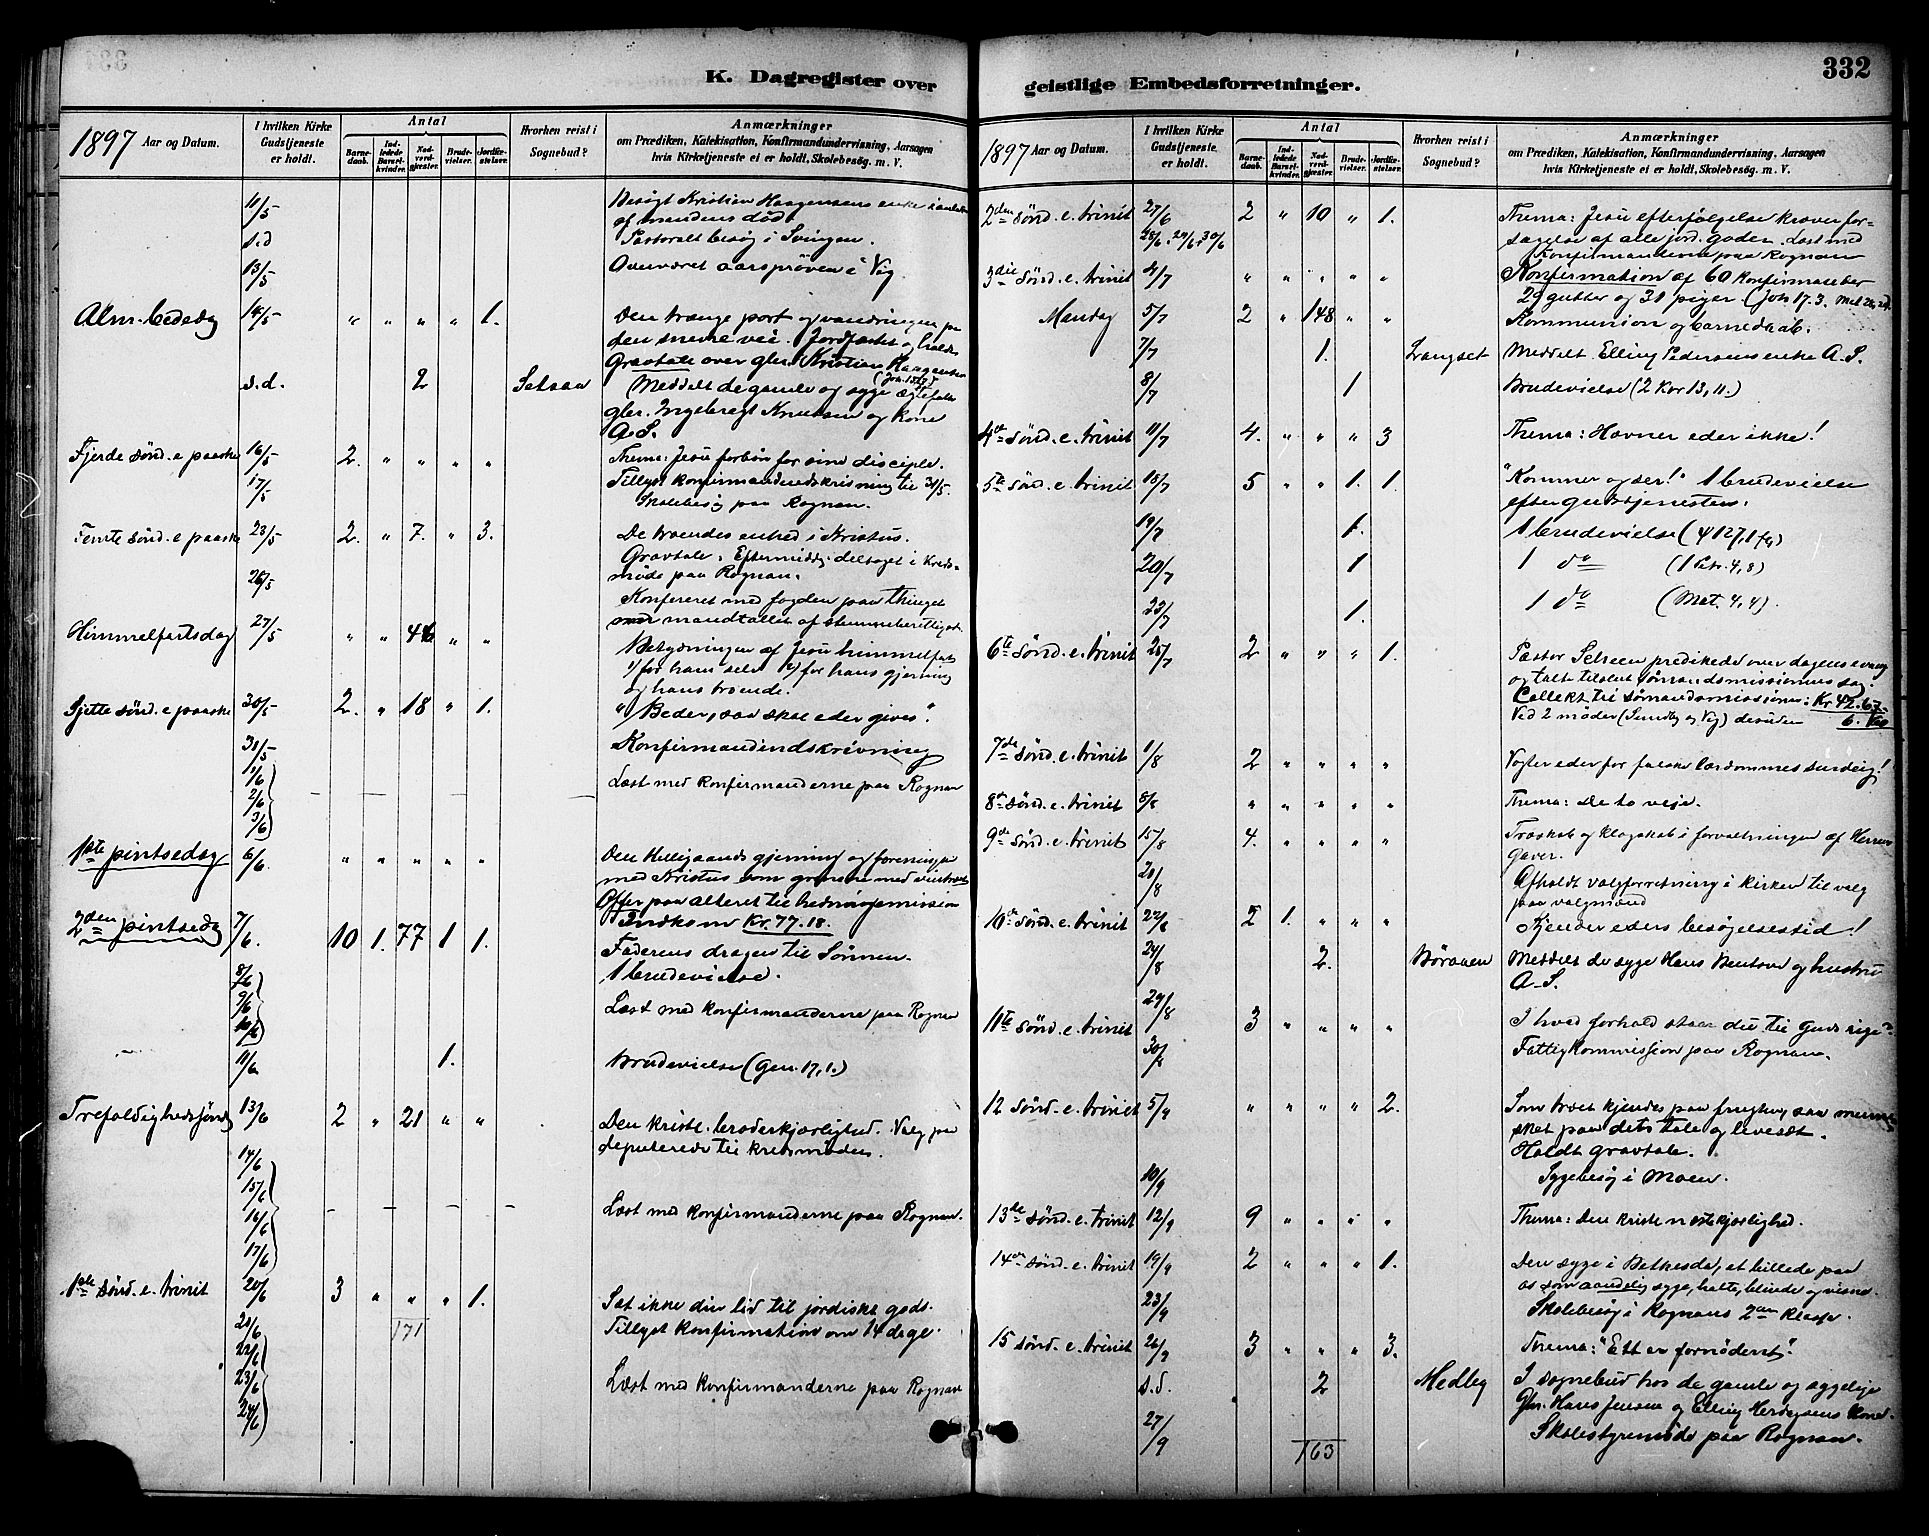 K. Dagregister over
1897 Aar og Datum.
I hvilken Kirke Gudstjeneste er holdt.
Antal
Barnedaab.
Indledede Barselkvinder.
Nadverdgjester.
Brudevielser.
Jordfæstelser.
Hvorhen reist i Sognebud?
Anmærkninger
om Prædiken, Katekisation, Konfirmandundervisning, Aarsagen
hvis Kirketjeneste ei er holdt, Skolebesøg m. V.
11/5 Besøgt Kristian Haagensens enke i
af mandens død.
s.d Pastoralt besøg i Svingen.
13/5 Overværet aarsprøven i Vig
Alm. bededag 14/5 " " " " 1. Den trange port og vandringen paa
den smale vei. Jordfæstet og holdt
Gravtale over gbr. Kristian Haagensen
s.d. 2 Setsaa Meddelt de gamle og syge ægtefolk
gbr. Ingebregt Knutsen og kone
A. S.
Fjerde sønd. e paaske 16/5 2. " " " " Thema: Jesu forbøn for sine disciple.
Tillyst konfirmandindskrivning til 31/5.
17/5 Skolebesøg paa Rognan.
Femte sønd. e paaske 23/5 2. " 7. " 3. De troendes enhed i Kristus.
Gravtale. Eftermiddg. deltaget i kredsmøde
paa Rognan.
26/5 Konfereret med fogden paa thinget
mandtallet af stemmeberettigede
Himmelfartsdag 27/5 " " 46 " " Betydningen af Jesu himmelfart
1) for ham selv 2) for hans gjerning
og hans troende.
Sjette sønd. e paaske 30/5 2. " 18 " 1. "Beder, saa skal eder gives".
31/5 Konfirmandindskrivning
1/6
2/6 Læst med konfirmanderne paa Rognan
3/6
1ste pintsedag 6/6 " " " " " Den Helligaands gjerning og foreningen
med Kristus som grenene med vintræet
Offer paa alteret til hedningemission
Indkom Kr. 77.18.
2den pintsedag 7/6. 10 1. 77 1 1. Faderens dragen til Sønnen.
1 brudevielse.
8/6
9/6 Læst med konfirmanderne paa Rognan
10/6
11/6 1. Brudevielse (Gen. 17,1.)
Trefoldighedssønd 13/6 2 " 21 " " Den kristl. broderkjærlighed. Valg paa
deputerede til kredsmøden.
14/6
15/6
16/6 Læst med konfirmanderne paa Rognan.
17/6
1ste sønd. e. trinit 20/6 3 " " " 1. Sæt ikke din lid til jordiske gods.
171 Tillyst konfirmation om 14 dage.
21/6
22/6
23/6 Læst med konfirmanderne paa Rognan
24/6
geistlige Embedsforretninger.
332
1897 Aar og Datum.
I hvilken Kirke Gudstjeneste er holdt.
Antal
Barnedaab.
Indledede Barselkvinder.
Nadverdgjester.
Brudevielser.
Jordfæstelser.
Hvorhen reist i Sognebud?
Anmærkninger
om Prædiken, Katekisation, Konfirmandundervisning, Aarsagen
hvis Kirketjeneste ei er holdt, Skolebesøg m. V.
2den sønd. e. trinit 27/6 2 " 10 " 1. Thema: Jesu efterfølgelse kræver forsagelse
af alle jord. goder. Læst med
28/6, 29/6, 30/6 Konfirmanderne paa Rognan
3die sønd. e. trinit 4/7 " " " " " Konfirmation af 60 konfirmander
29 gutter og 31 piger. (Joh 17.3.
Mandag 5/7 2 " 148 " " Kommunion og barnedaab.
7/7 1. Langset Meddelt Elling Pedersens enke A. S.
8/7 1 Brudevielse (2 Kor 13, 11.)
4de sønd. e. trinit 11/7 4. " " " 3 Thema: Hævner eder ikke!
5te sønd. e. trinit 18/7 5 " " 1. 1. "Kommer og ser!" 1 brudevielse
efter gudstjenesten.
19/7 1. 1 brudevielse (
20/7 1 1 do (1 Petr. 4, 8)
23/7 1. 1 do (Mat. 4, 4).
6te sønd. e. trinit 25/7 2 " " " 1. Pastor Selseen prædikede over dagens evang
og talte tilslut sømandsmissionens sag.
Collekt til sømandsmissionen: Kr. 42.67.
Ved 2 møder (Sundby og Vig) desuden 6.
7de sønd. e. trinit 1/8 2 " " " " Vogter eder for falske lærdommes surdeig!
8de sønd. e. trinit 8/8 " " " " " Thema: De to veje.
9de sønd. e. trinit 15/8 4. " " " " Troskab og klogskab i forvaltningen af Herrens
Gaver.
20/8 Afholdt valgforretning i kirken til valg
paa valgmænd
10de sønd. e. trinit 22/8 2 1. " " " Kjender eders besøgelsestid!
24/8 2. Meddelt de syge Hans Bentsen og hustru
A. S.
11te sønd. e. trinit 29/8 3 " " " " I hvad forhold staar du til Guds rige?
30/8 Fattigkommission paa Rognan.
12 sønd. e. trinit 5/9 " " " " 2. Som træet kjendes paa frugten, saa mennesket
paa dets tale og levesæt.
Holdt gravtale.
10/9 Sygebesøg i Moen.
13de sønd. e. trinit 12/9 9 " " " " Thema: Den kristne næstekjærlighed.
14de sønd. e. trinit 19/9 2 " " " 1. Den syge i Bethesda, et billede paa
os som aandelig syge, halte, blinde og visne.
23/9 Skolebesøg i Rognans 2den klasse.
15 sønd. e. trinit 26/9 3 " " " 3. Thema: "Ett er fornødent".
s.d. 2 Medby I sognebud hos de gamle og sygelige
Gbr. Hans Jensen og Elling Herdagsens kone.
27/9 Skolestyremøde paa Rognan.
163